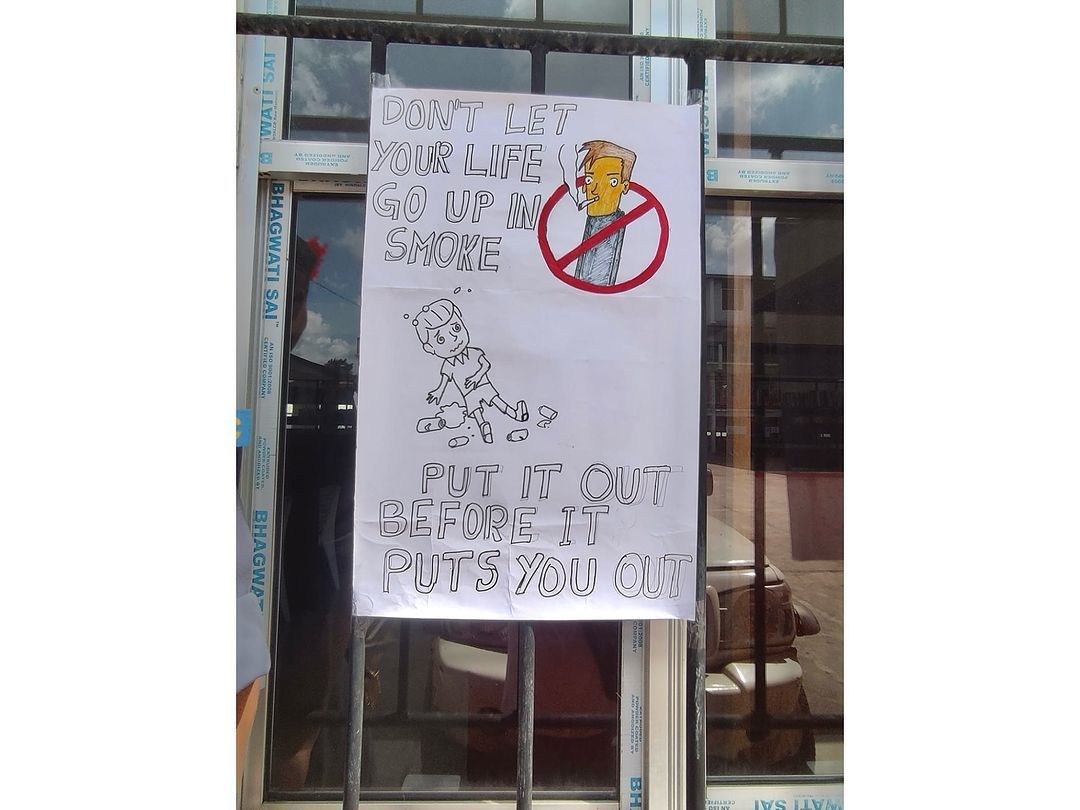 DON'T LET
YOUR LIFE
GO UP IN
SMOKE
PUT IT OUT
BEFORE IT
PUTS YOU OUT
BHAGWATI SAI
AN ISO 9001:2008
CERTIFIED COMPANY
EXTRUDED
POWDER COATED
AND ANODIZED BY
BHAGWAT